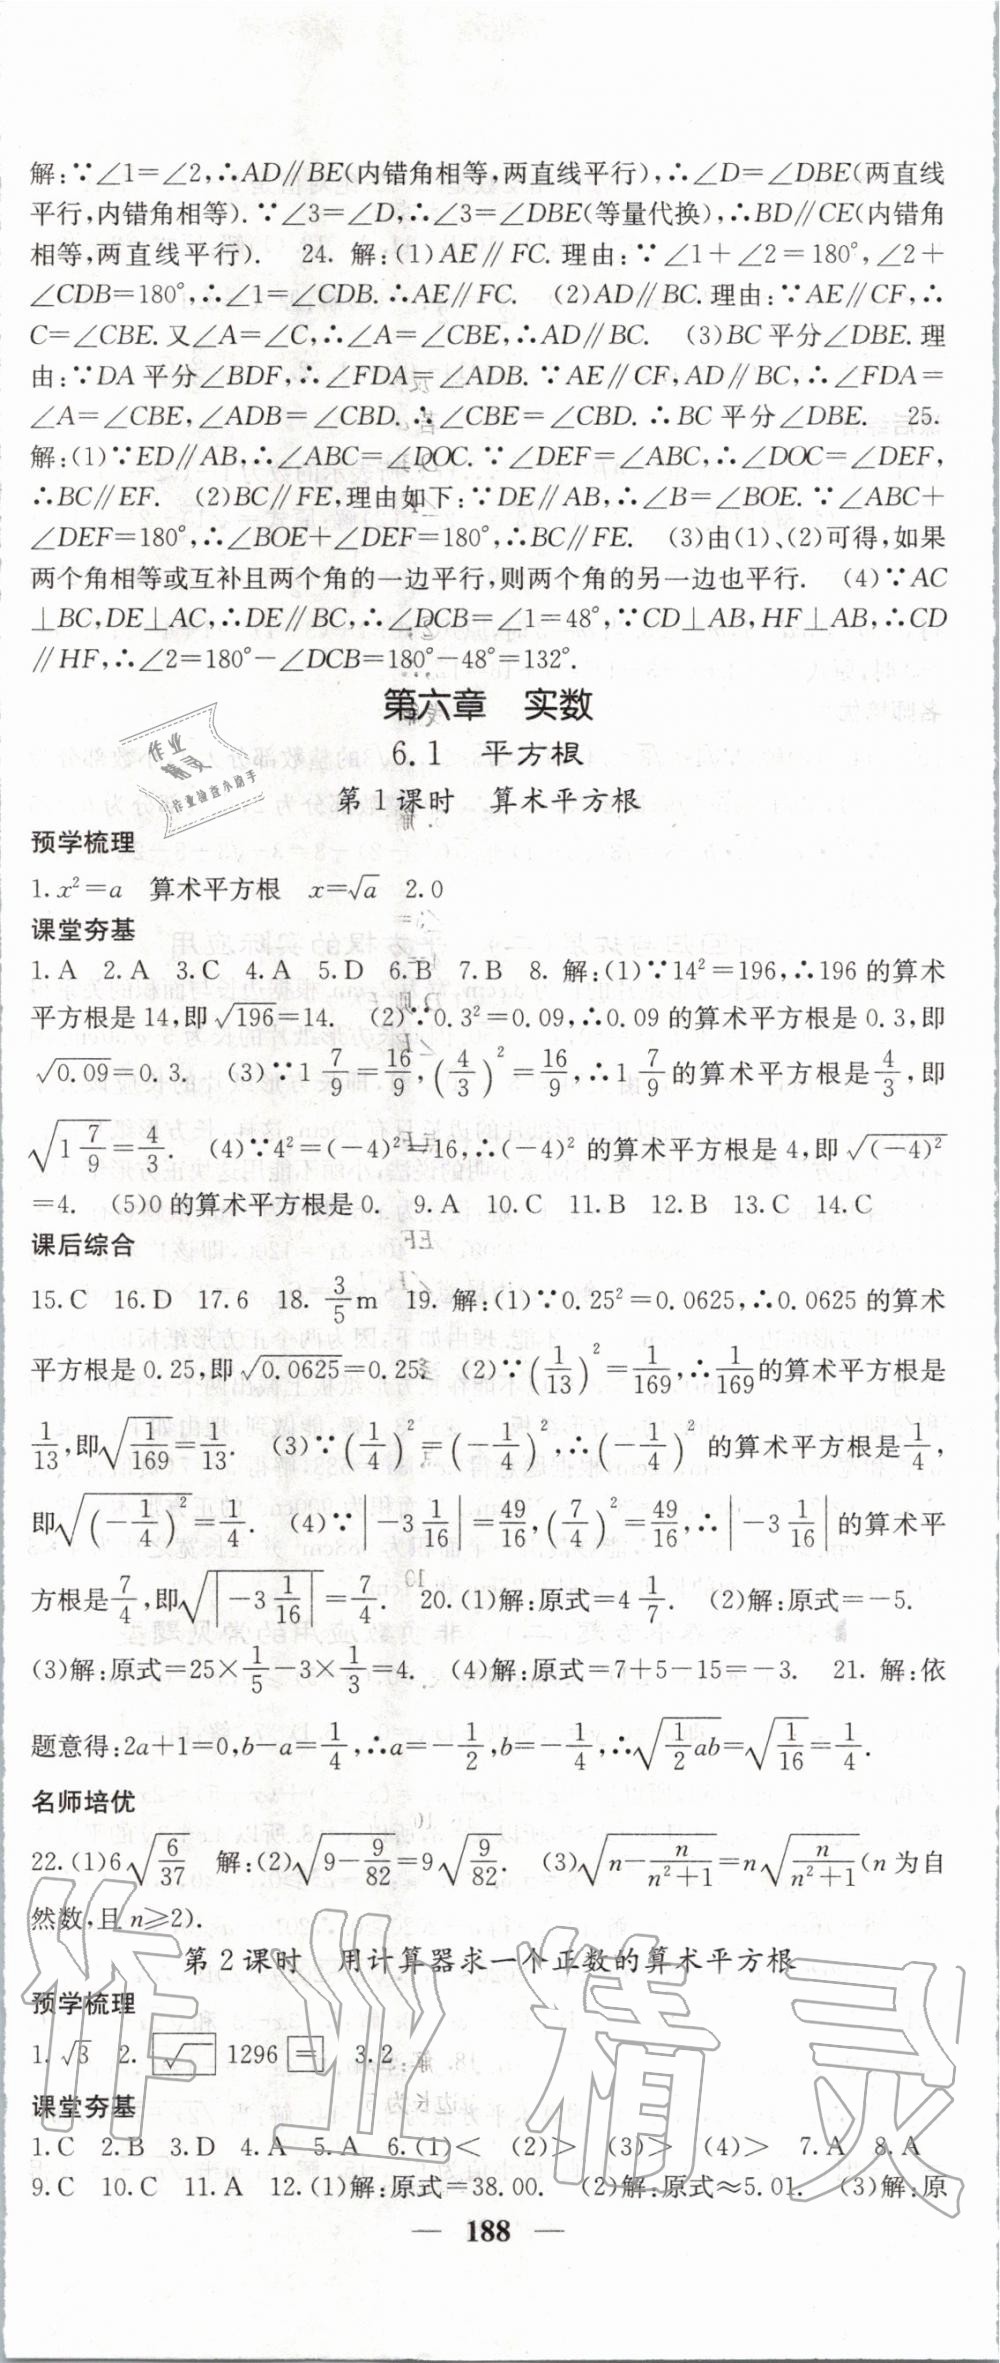 解:∵∠1=∠2,∴AD∥BE(内错角相等,两直线平行),∴∠D=∠DBE(两直线
平行,内错角相等).∵∠3=∠D,∴∠3=∠DBE(等量代换),∴BD∥CE(内错角
相等,两直线平行). 24. 解:(1)AE∥FC.理由:∵∠1+∠2=180°,∠2+
∠CDB=180°,∴∠1=∠CDB.∴AE∥FC. (2)AD∥BC.理由:∵AE∥CF,∴
C=∠CBE.又∠A=∠C,∴∠A=∠CBE,∴AD∥BC. (3)BC平分∠DBE.理
由:∵DA平分∠BDF,∴∠FDA=∠ADB.∵AE∥CF,AD∥BC,∴∠FDA=
∠A=∠CBE,∠ADB=∠CBD.∴∠CBE=∠CBD.∴BC平分∠DBE. 25.
解:(1)∵ED∥AB,∴∠ABC=∠DOC.∵∠DEF=∠ABC,∴∠DOC=∠DEF,
∴BC∥EF. (2)BC∥FE,理由如下:∵DE∥AB,∴∠B=∠BOE.∵∠ABC+
∠DEF=180°,∴∠BOE+∠DEF=180°,∴BC∥FE. (3)由(1)、(2)可得,如果
两个角相等或互补且两个角的一边平行,则两个角的另一边也平行. (4)∵AC
⊥BC,DE⊥AC,∴DE∥BC,∴∠DCB=∠1=48°,∵CD⊥AB,HF⊥AB,∴CD
∥HF,∴∠2=180°-∠DCB=180°-48°=132°.
第六章 实数
6.1 平方根
第1课时 算术平方根
作业
精灵
作业检查小助手
预学梳理
1.x²=a 算术平方根 x=√a 2.0
课堂夯基
1.A 2.A 3.C 4.A 5.D 6.B 7.B 8. 解:(1)∵14²=196,∴196的算术
平方根是14,即√196=14. (2)∵0.3²=0.09,∴0.09的算术平方根是0.3,即
√0.09=0.3. (3)∵1 7/9=16/9,(4/3)²=16/9,∴1 7/9的算术平方根是4/3,即
√(1 7/9)=4/3. (4)∵4²=(-4)²=16,∴(-4)²的算术平方根是4,即√(-4)²
=4. (5)0的算术平方根是0. 9.A 10.C 11.B 12.B 13.C 14.C
课后综合
15.C 16.D 17.6 18. 3/5 m 19. 解:(1)∵0.25²=0.0625,∴0.0625的算术
平方根是0.25,即√0.0625=0.25. (2)∵(1/13)²=1/169,∴1/169的算术平方根是
1/13,即√(1/169)=1/13. (3)∵(1/4)²=(-1/4)²,∴(-1/4)²的算术平方根是1/4,
即√((-1/4)²)=1/4. (4)∵|-3 1/16|=49/16,(7/4)²=49/16,∴|-3 1/16|的算术平
方根是7/4,即√|-3 1/16|=7/4. 20.(1)解:原式=4 1/7. (2)解:原式=-5.
(3)解:原式=25×1/5-3×1/3=4. (4)解:原式=7+5-15=-3. 21. 解:依
题意得:2a+1=0,b-a=1/4,∴a=-1/2,b=-1/4,∴√(1/2 ab)=√(1/16)=1/4.
名师培优
22.(1)6√(6/37) 解:(2)√(9-9/82)=9√(9/82). (3)√(n-n/(n²+1))=n√(n/(n²+1))(n为自
然数,且n≥2).
第2课时 用计算器求一个正数的算术平方根
预学梳理
1.√3 2. √ 1296 = 3.2
课堂夯基
1.C 2.B 3.D 4.A 5.A 6.(1)< (2)> (3)> (4)> 7.A 8.A
9.C 10.C 11.A 12.(1)解:原式=38.00. (2)解:原式≈5.01. (3)解:原
— 188 —
作业精灵